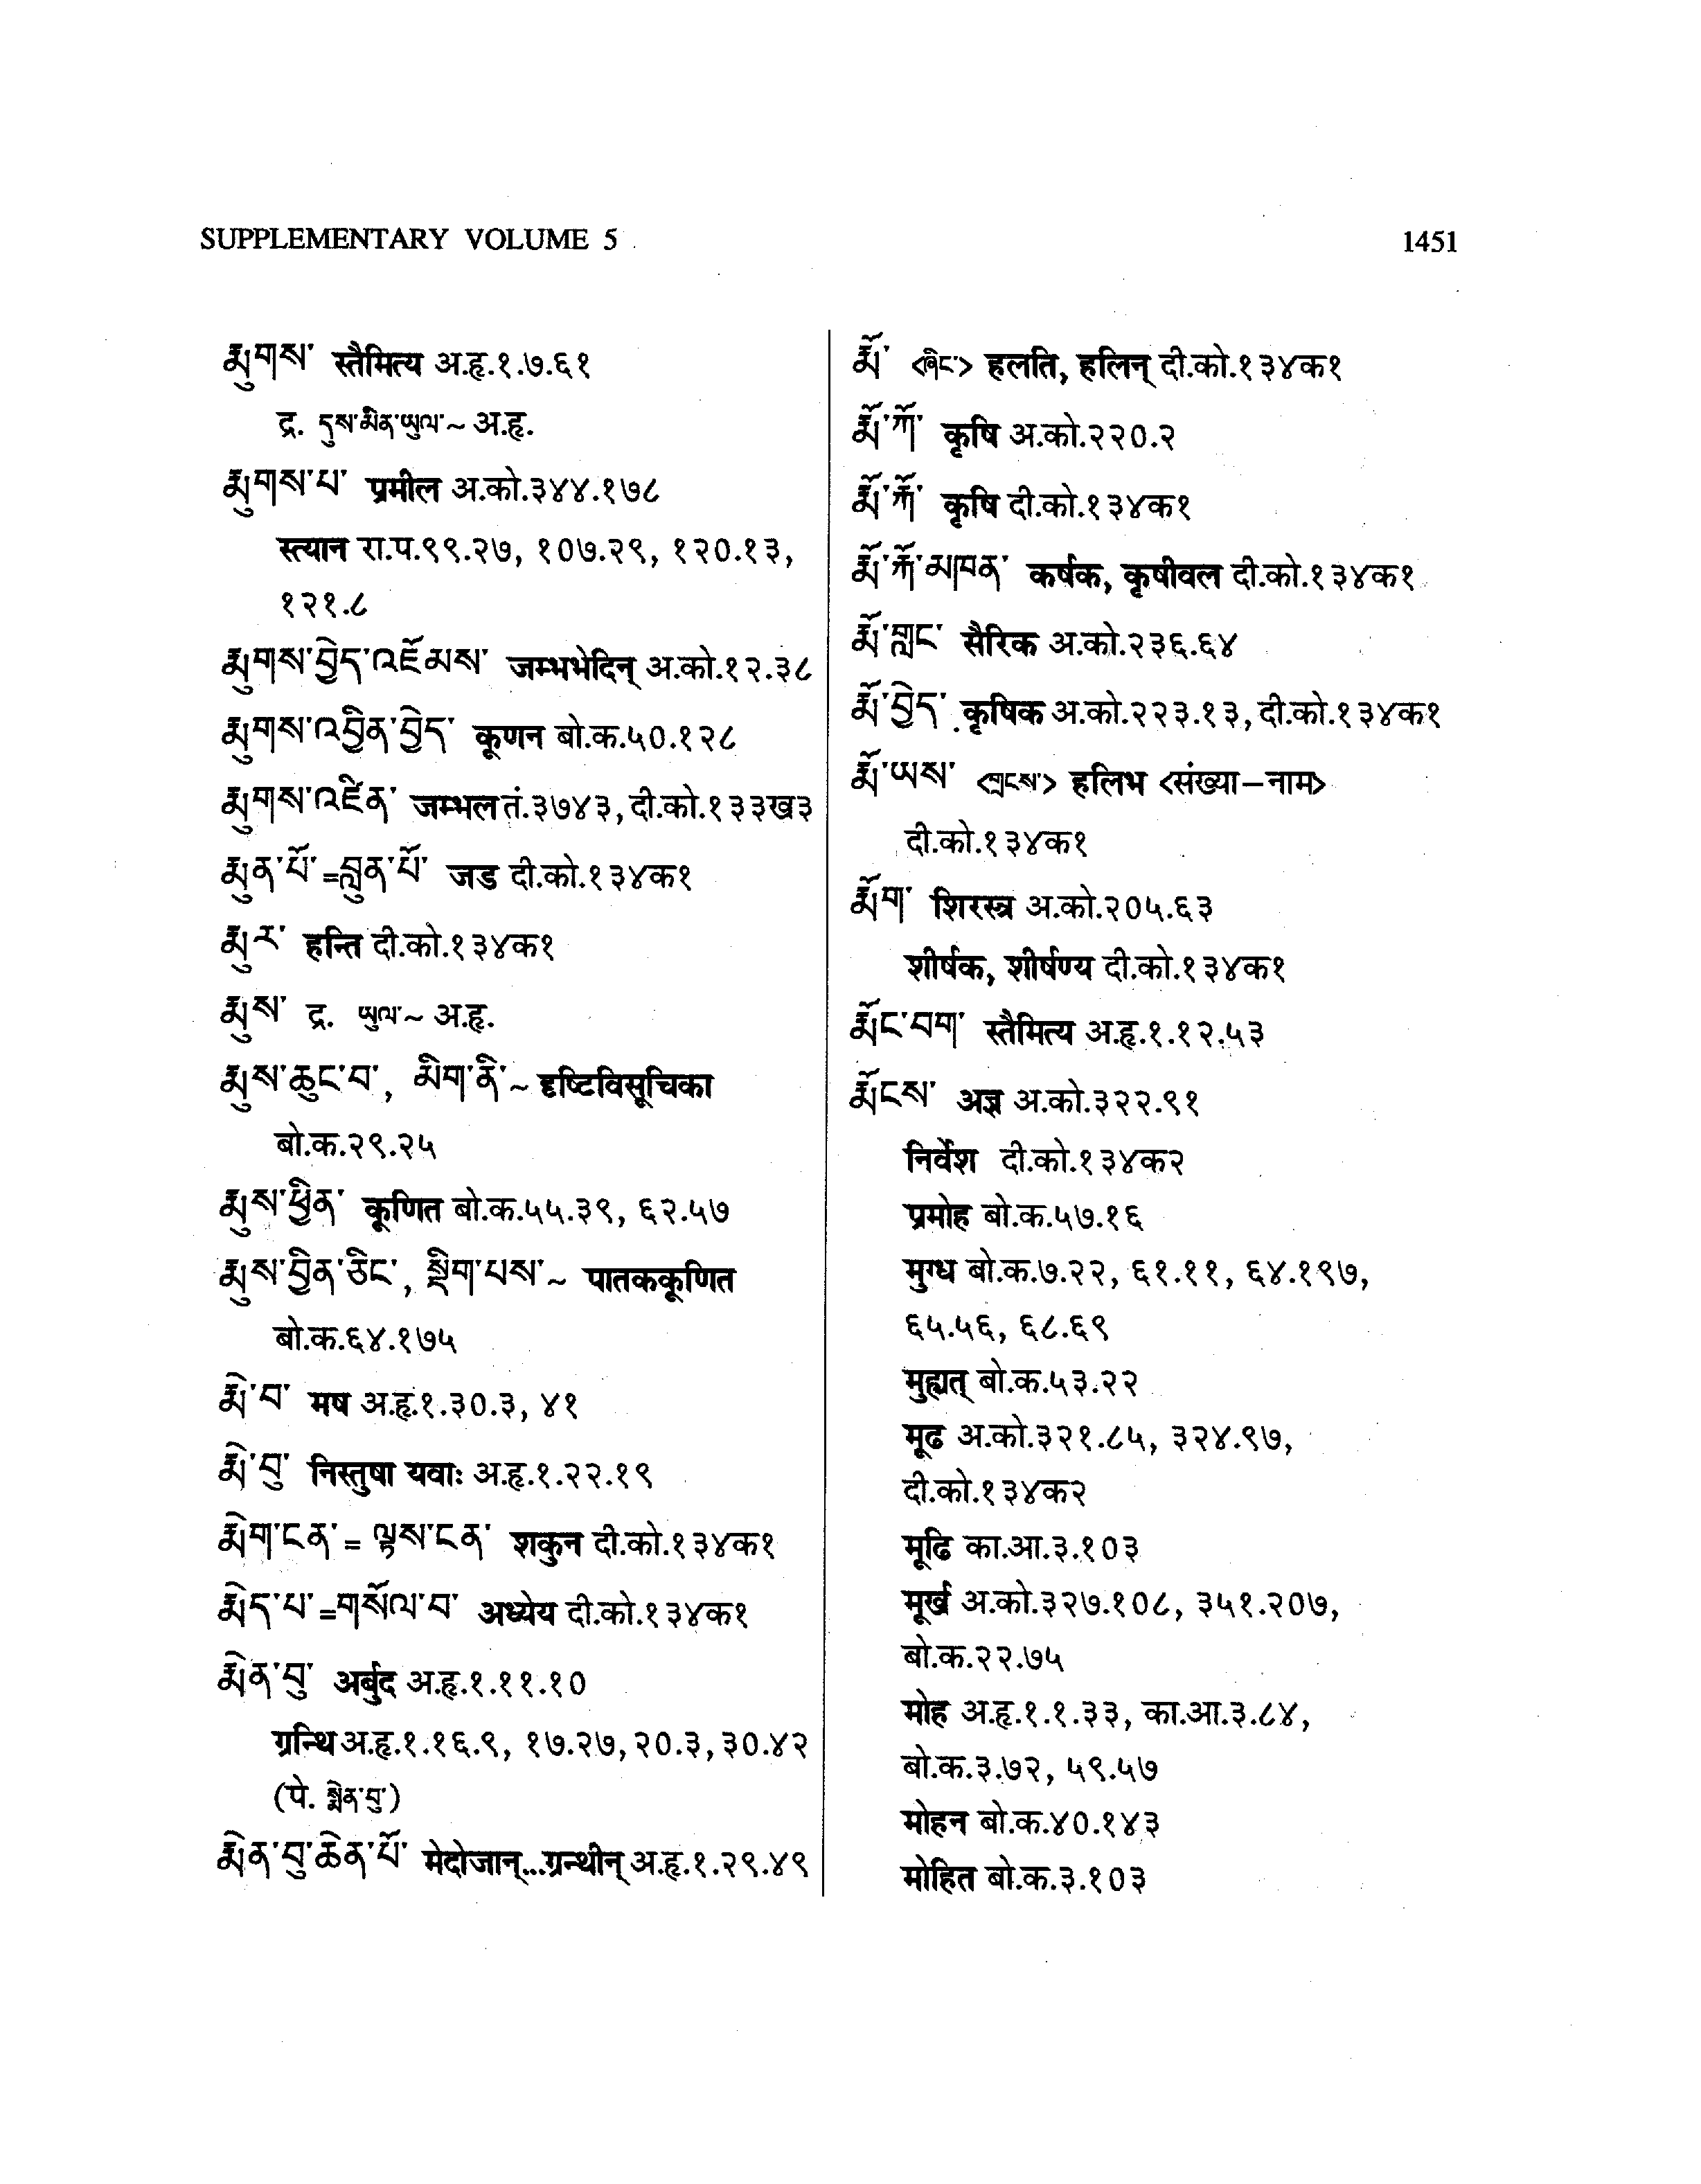 SUPPLEMENTARY VOLUME 5
1451
རྨུགས་ स्तैमित्य अ.हृ.१.७.६१
द्र. དུས་མིན་ཡུལ་~ अ.हृ.
རྨུགས་པ་ प्रमील अ.को.३४४.१७८
स्त्यान रा.प.९९.२७, १०७.२९, १२०.१३,
१२१.८
རྨུགས་བྱེད་འཇོམས་ जम्भभेदिन् अ.को.१२.३८
རྨུགས་འབྱིན་བྱེད་ कूणन बो.क.५०.१२८
རྨུགས་འཛིན་ जम्भल तं.३७४३, दी.को.१३३ख३
རྨུན་པོ་=བླུན་པོ་ जड दी.को.१३४क१
རྨུར་ हन्ति दी.को.१३४क१
རྨུས་ द्र. ཡུལ་~ अ.हृ.
རྨུས་ཆུང་བ་, མིག་ནི་~ दृष्टिविसूचिका
बो.क.२९.२५
རྨུས་ཕྱིན་ कूणित बो.क.५५.३९, ६२.५७
རྨུས་བྱིན་ཅིང་, སྡིག་པས་~ पातककूणित
बो.क.६४.१७५
རྨེ་བ་ मष अ.हृ.१.३०.३, ४१
རྨེ་བུ་ निस्तुषा यवाः अ.हृ.१.२२.१९
རྨེག་ངན་= ལྟས་ངན་ शकुन दी.को.१३४क१
རྨེད་པ་=གསོལ་བ་ अध्येय दी.को.१३४क१
རྨེན་བུ་ अर्बुद अ.हृ.१.११.१०
ग्रन्थि अ.हृ.१.१६.९, १७.२७, २०.३, ३०.४२
(पे. སྨེན་བུ་)
རྨེན་བུ་ཆེན་པོ་ मेदोजान्...ग्रन्थीन् अ.हृ.१.२९.४९
རྨོ་ <ཞིང་> हलति, हलिन् दी.को.१३४क१
རྨོ་ཀོ་ कृषि अ.को.२२०.२
རྨོ་རྐོ་ कृषि दी.को.१३४क१
རྨོ་རྐོ་མཁན་ कर्षक, कृषीवल दी.को.१३४क१
རྨོ་གླང་ सैरिक अ.को.२३६.६४
རྨོ་བྱེད་ कृषिक अ.को.२२३.१३, दी.को.१३४क१
རྨོ་ཡས་ <གྲངས་> हलिभ <संख्या-नाम>
दी.को.१३४क१
རྨོག་ शिरस्त्र अ.को.२०५.६३
शीर्षक, शीर्षण्य दी.को.१३४क१
རྨོང་བག་ स्तैमित्य अ.हृ.१.१२.५३
རྨོངས་ अज्ञ अ.को.३२२.९१
निर्वेश दी.को.१३४क२
प्रमोह बो.क.५७.१६
मुग्ध बो.क.७.२२, ६१.११, ६४.१९७,
६५.५६, ६८.६९
मुह्यत् बो.क.५३.२२
मूढ अ.को.३२१.८५, ३२४.९७,
दी.को.१३४क२
मूढि का.आ.३.१०३
मूर्ख अ.को.३२७.१०८, ३५१.२०७,
बो.क.२२.७५
मोह अ.हृ.१.१.३३, का.आ.३.८४,
बो.क.३.७२, ५९.५७
मोहन बो.क.४०.१४३
मोहित बो.क.३.१०३